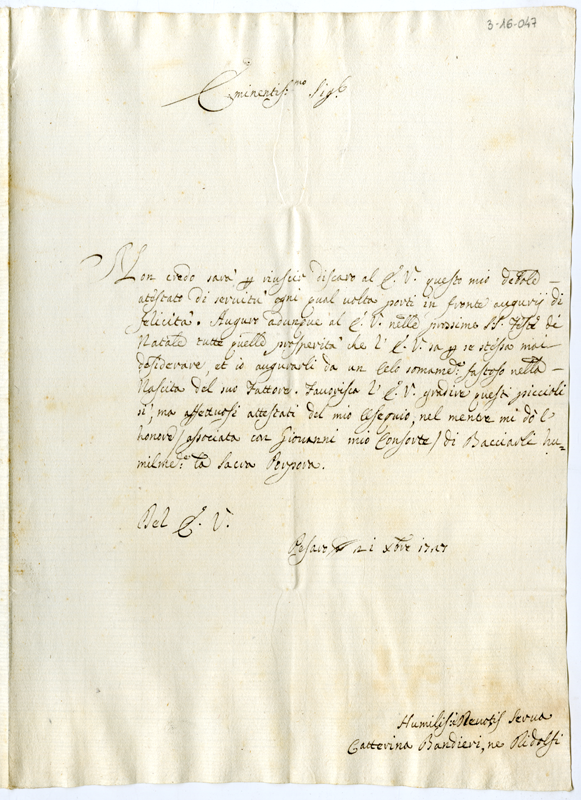 3-16-047
Eminentis.mo Sigr.
Non credo sarà p riuscir discaro al E. V. questo mio debole
atestato di servitù ogni qual volta porti in fronte augurij di
felicità. Auguro adunque al E. V. nelle prossime SS. Feste di
Natale tutte quelle prosperità che l' E. V. sa p se stessa mai
desiderare, et io augurarli da un Celo somame.te fastoso nella
Nascita del suo Fattore. Favorisca l' E. V. gradire questi piccioli
sì, ma affettuosi attestati del mio Ossequio, nel mentre mi dò l'
honore (associata con Giovanni mio Consorte) di Bacciarli hu=
milme.te la Sacra Porpora.
Del E. V.
Pesaro 21 Xbre 1727
Humilis: Devotis Serva
Catterina Bandieri, ne Ridolfi